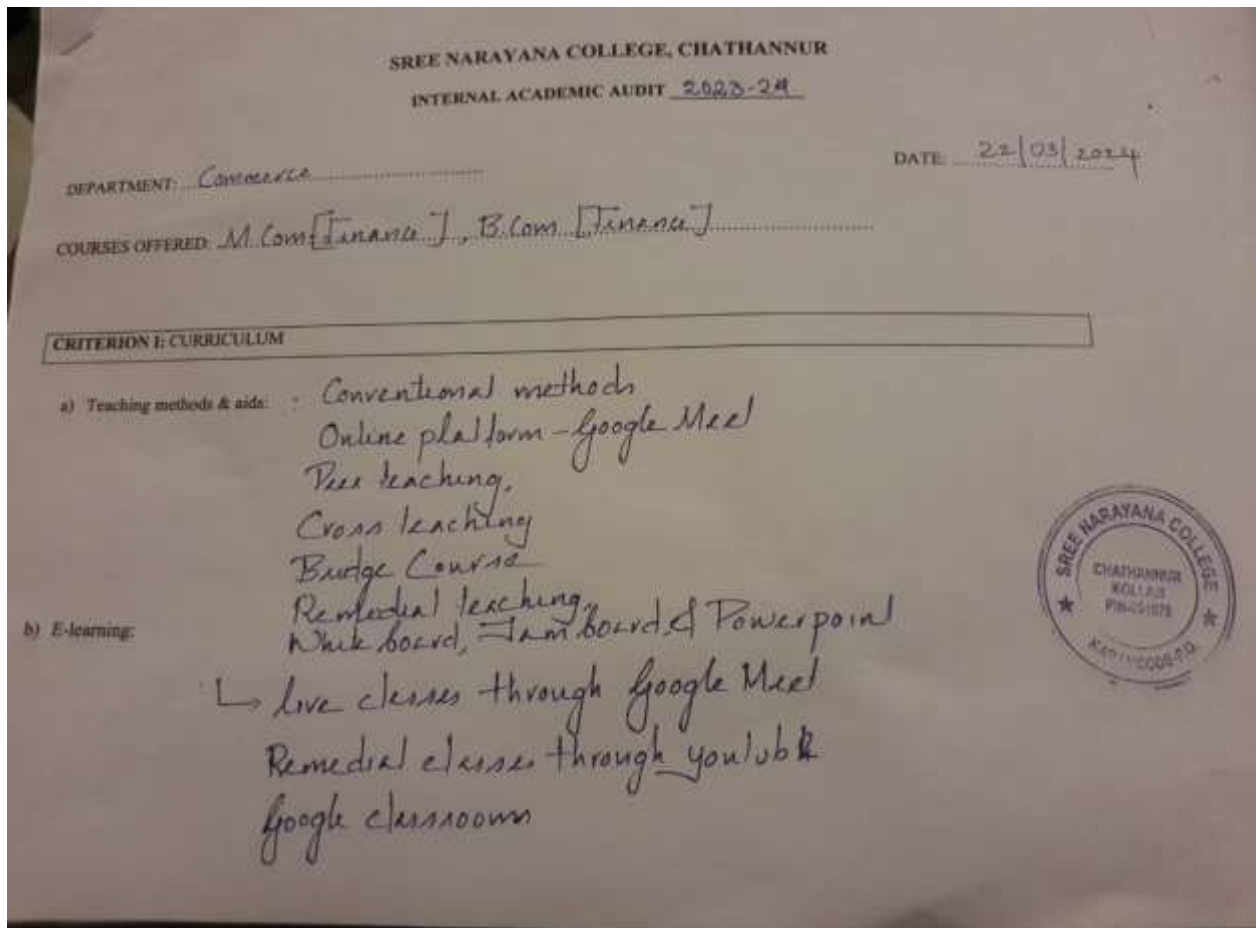 SREE NARAYANA COLLEGE, CHATHANNUR
INTERNAL ACADEMIC AUDIT 2023-24
DATE: 22/03/2024
DEPARTMENT: Commerce
COURSES OFFERED: M.Com [Finance], B.Com [Finance]
CRITERION I: CURRICULUM
a) Teaching methods & aids: : Conventional methods
Online platform - Google Meet
Peer teaching,
Cross teaching
Bridge Course
Remedial teaching,
b) E-learning:
White board, Jam board, & Powerpoint
↳ live classes through Google Meet
Remedial classes through youtube
Google classrooms
SREE NARAYANA COLLEGE
CHATHANNUR
KOLLAM